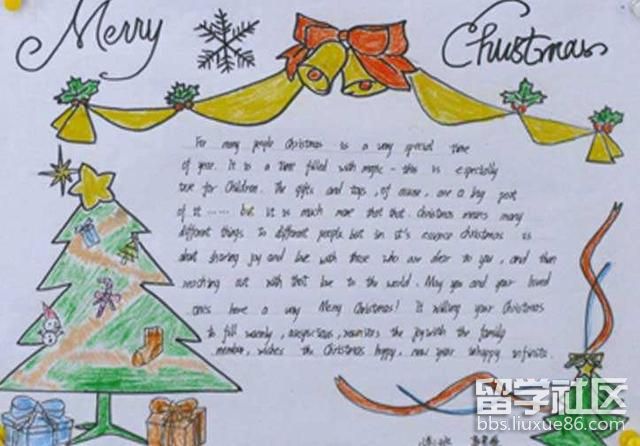 Merry Christmas
For many people Christmas is a very special time
of year. It is a time filled with magic - this is especially
true for children. The gifts and toys, of course, are a big part
of it ...... but it is much more that that. Christmas means many
different things to different people but in it's essence Christmas is
about sharing joy and love with those who are dear to you, and then
reaching out with that love to the world. May you and your loved
ones have a very Merry Christmas! Is willing your Christmas
to fill warmly, auspicious, the joy with the family
member, wishes the Christmas happy, new year happy infinite.
留学社区
bbs.liuxue86.com